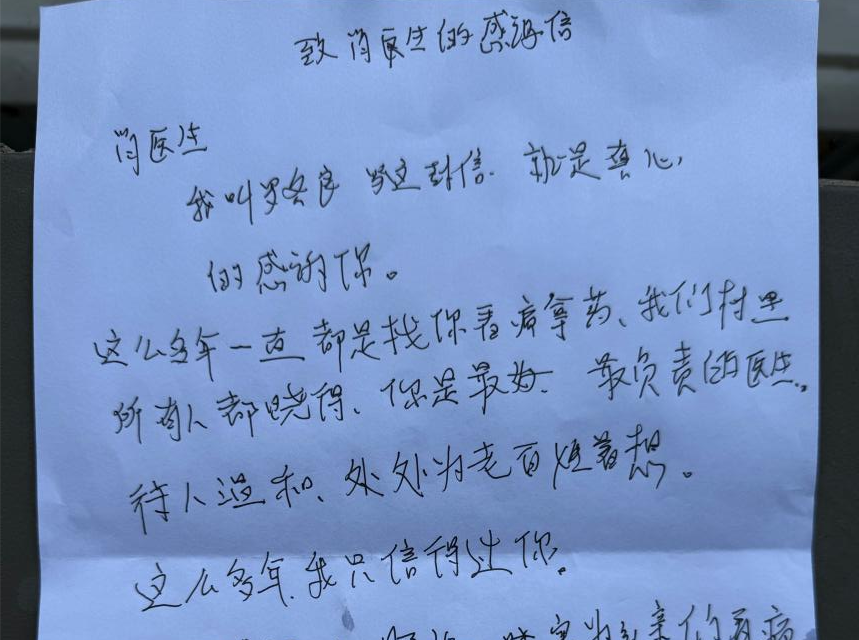 致肖医生的感谢信
肖医生
我叫罗冬良 写这封信. 就是真心,
的感谢你。
这么多年一直都是找你看病拿药、我们村里
所有人都晓得、你是最好 最负责的医生。
待人温和、处处为老百姓着想。
这么多年、我只信得过你。